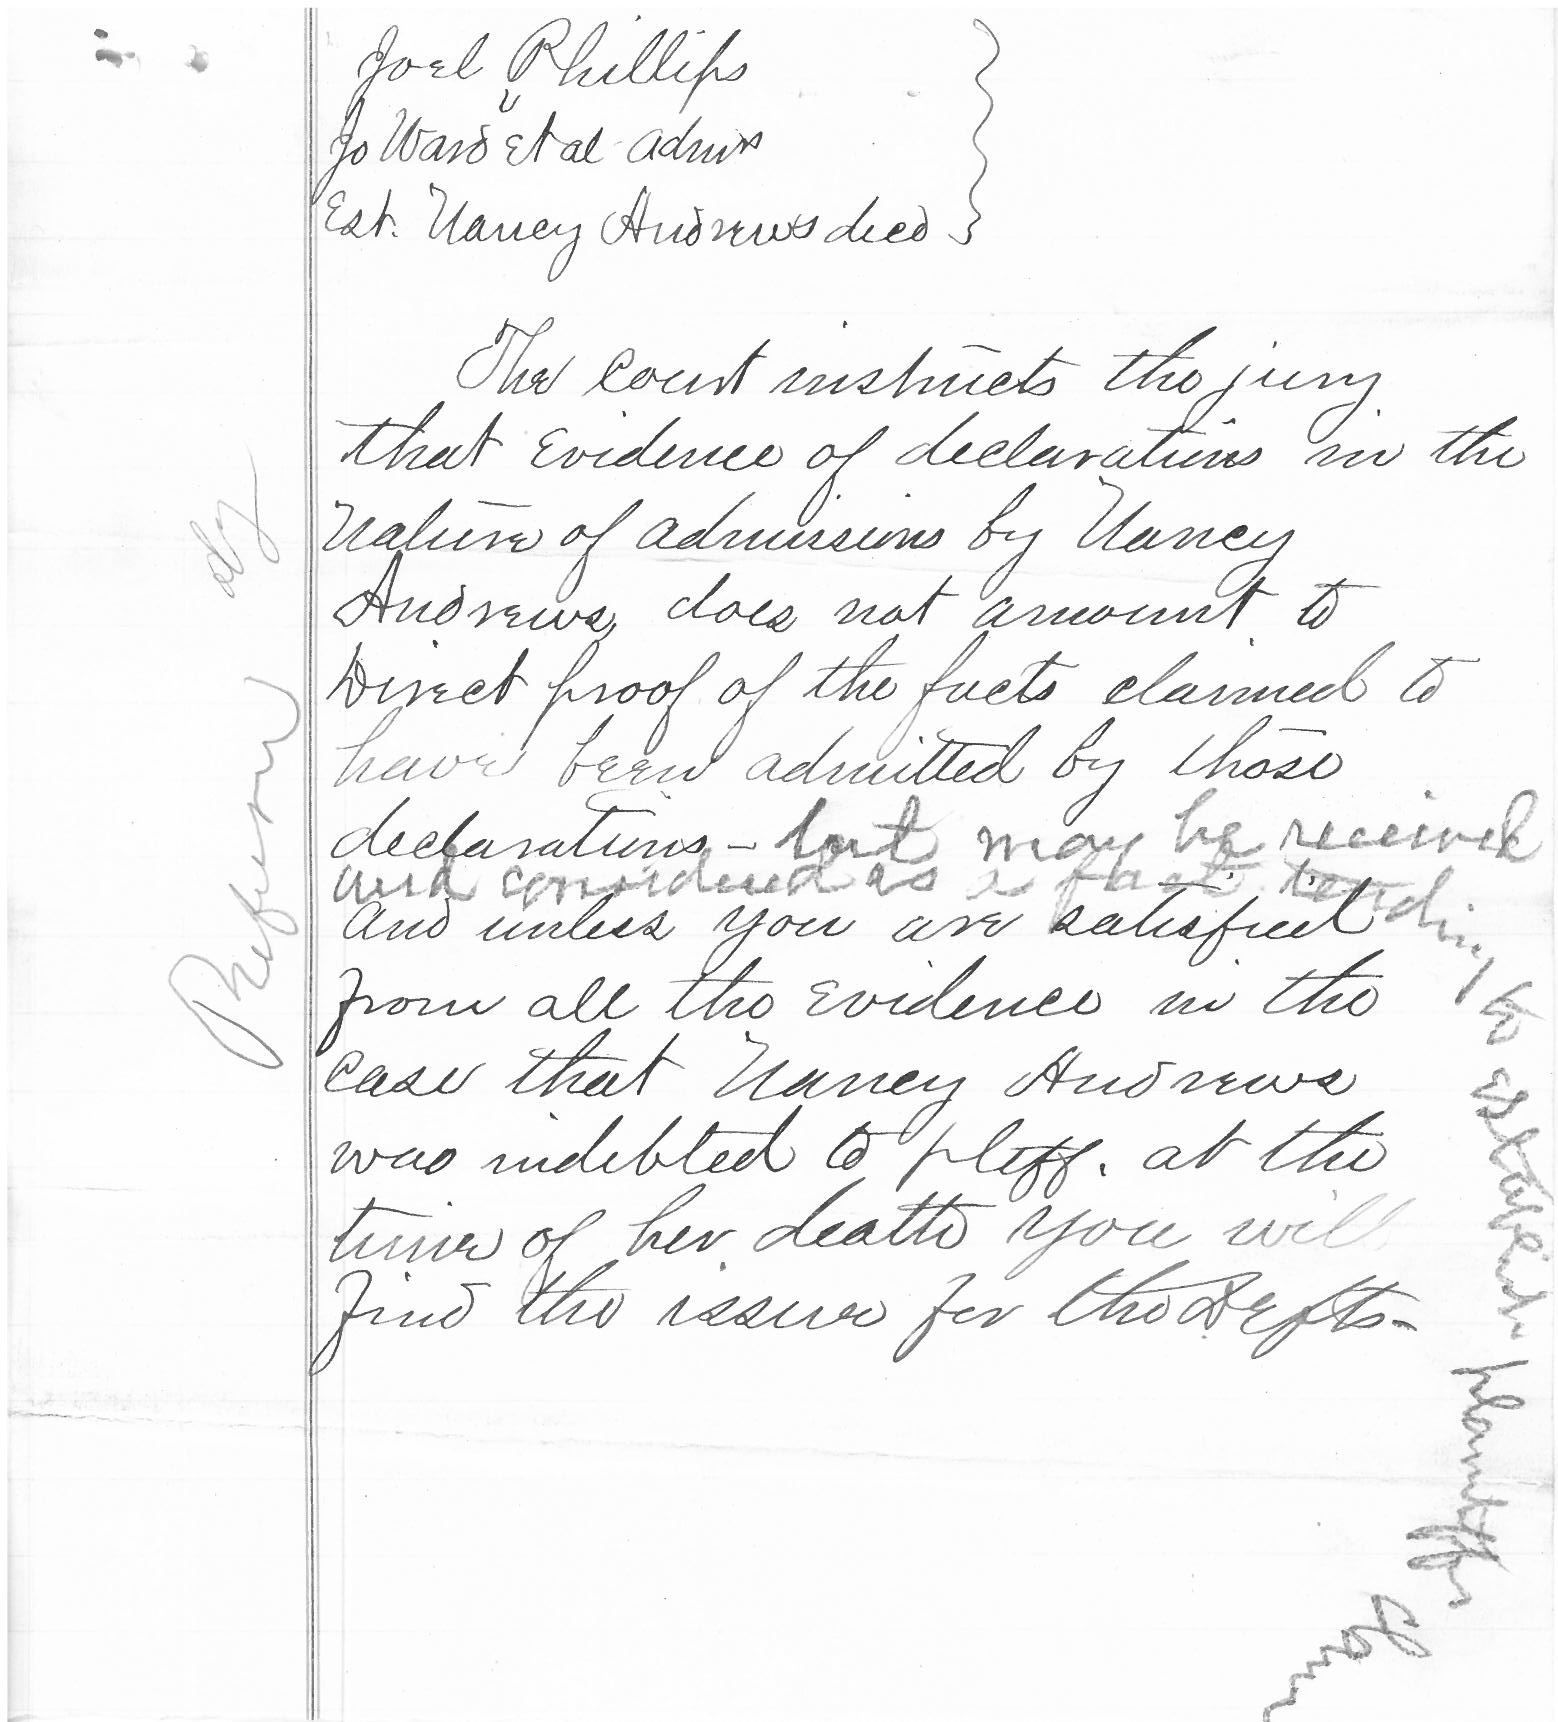 Joel Phillips
v
Jo Ward et al admrs
Est. Nancy Andrews decd
The Court instructs the jury
that Evidence of declarations in the
Nature of admissions by Nancy
Andrews, does not amount to
Direct proof of the facts claimed to
have been admitted by those
declarations - but may be received
and considered as a fact tending to establish plaintiffs Claim
and unless you are satisfied
from all the Evidence in the
case that Nancy Andrews
was indebted to pleff. at the
time of her death you will
find the issue for the Defts-
Refused